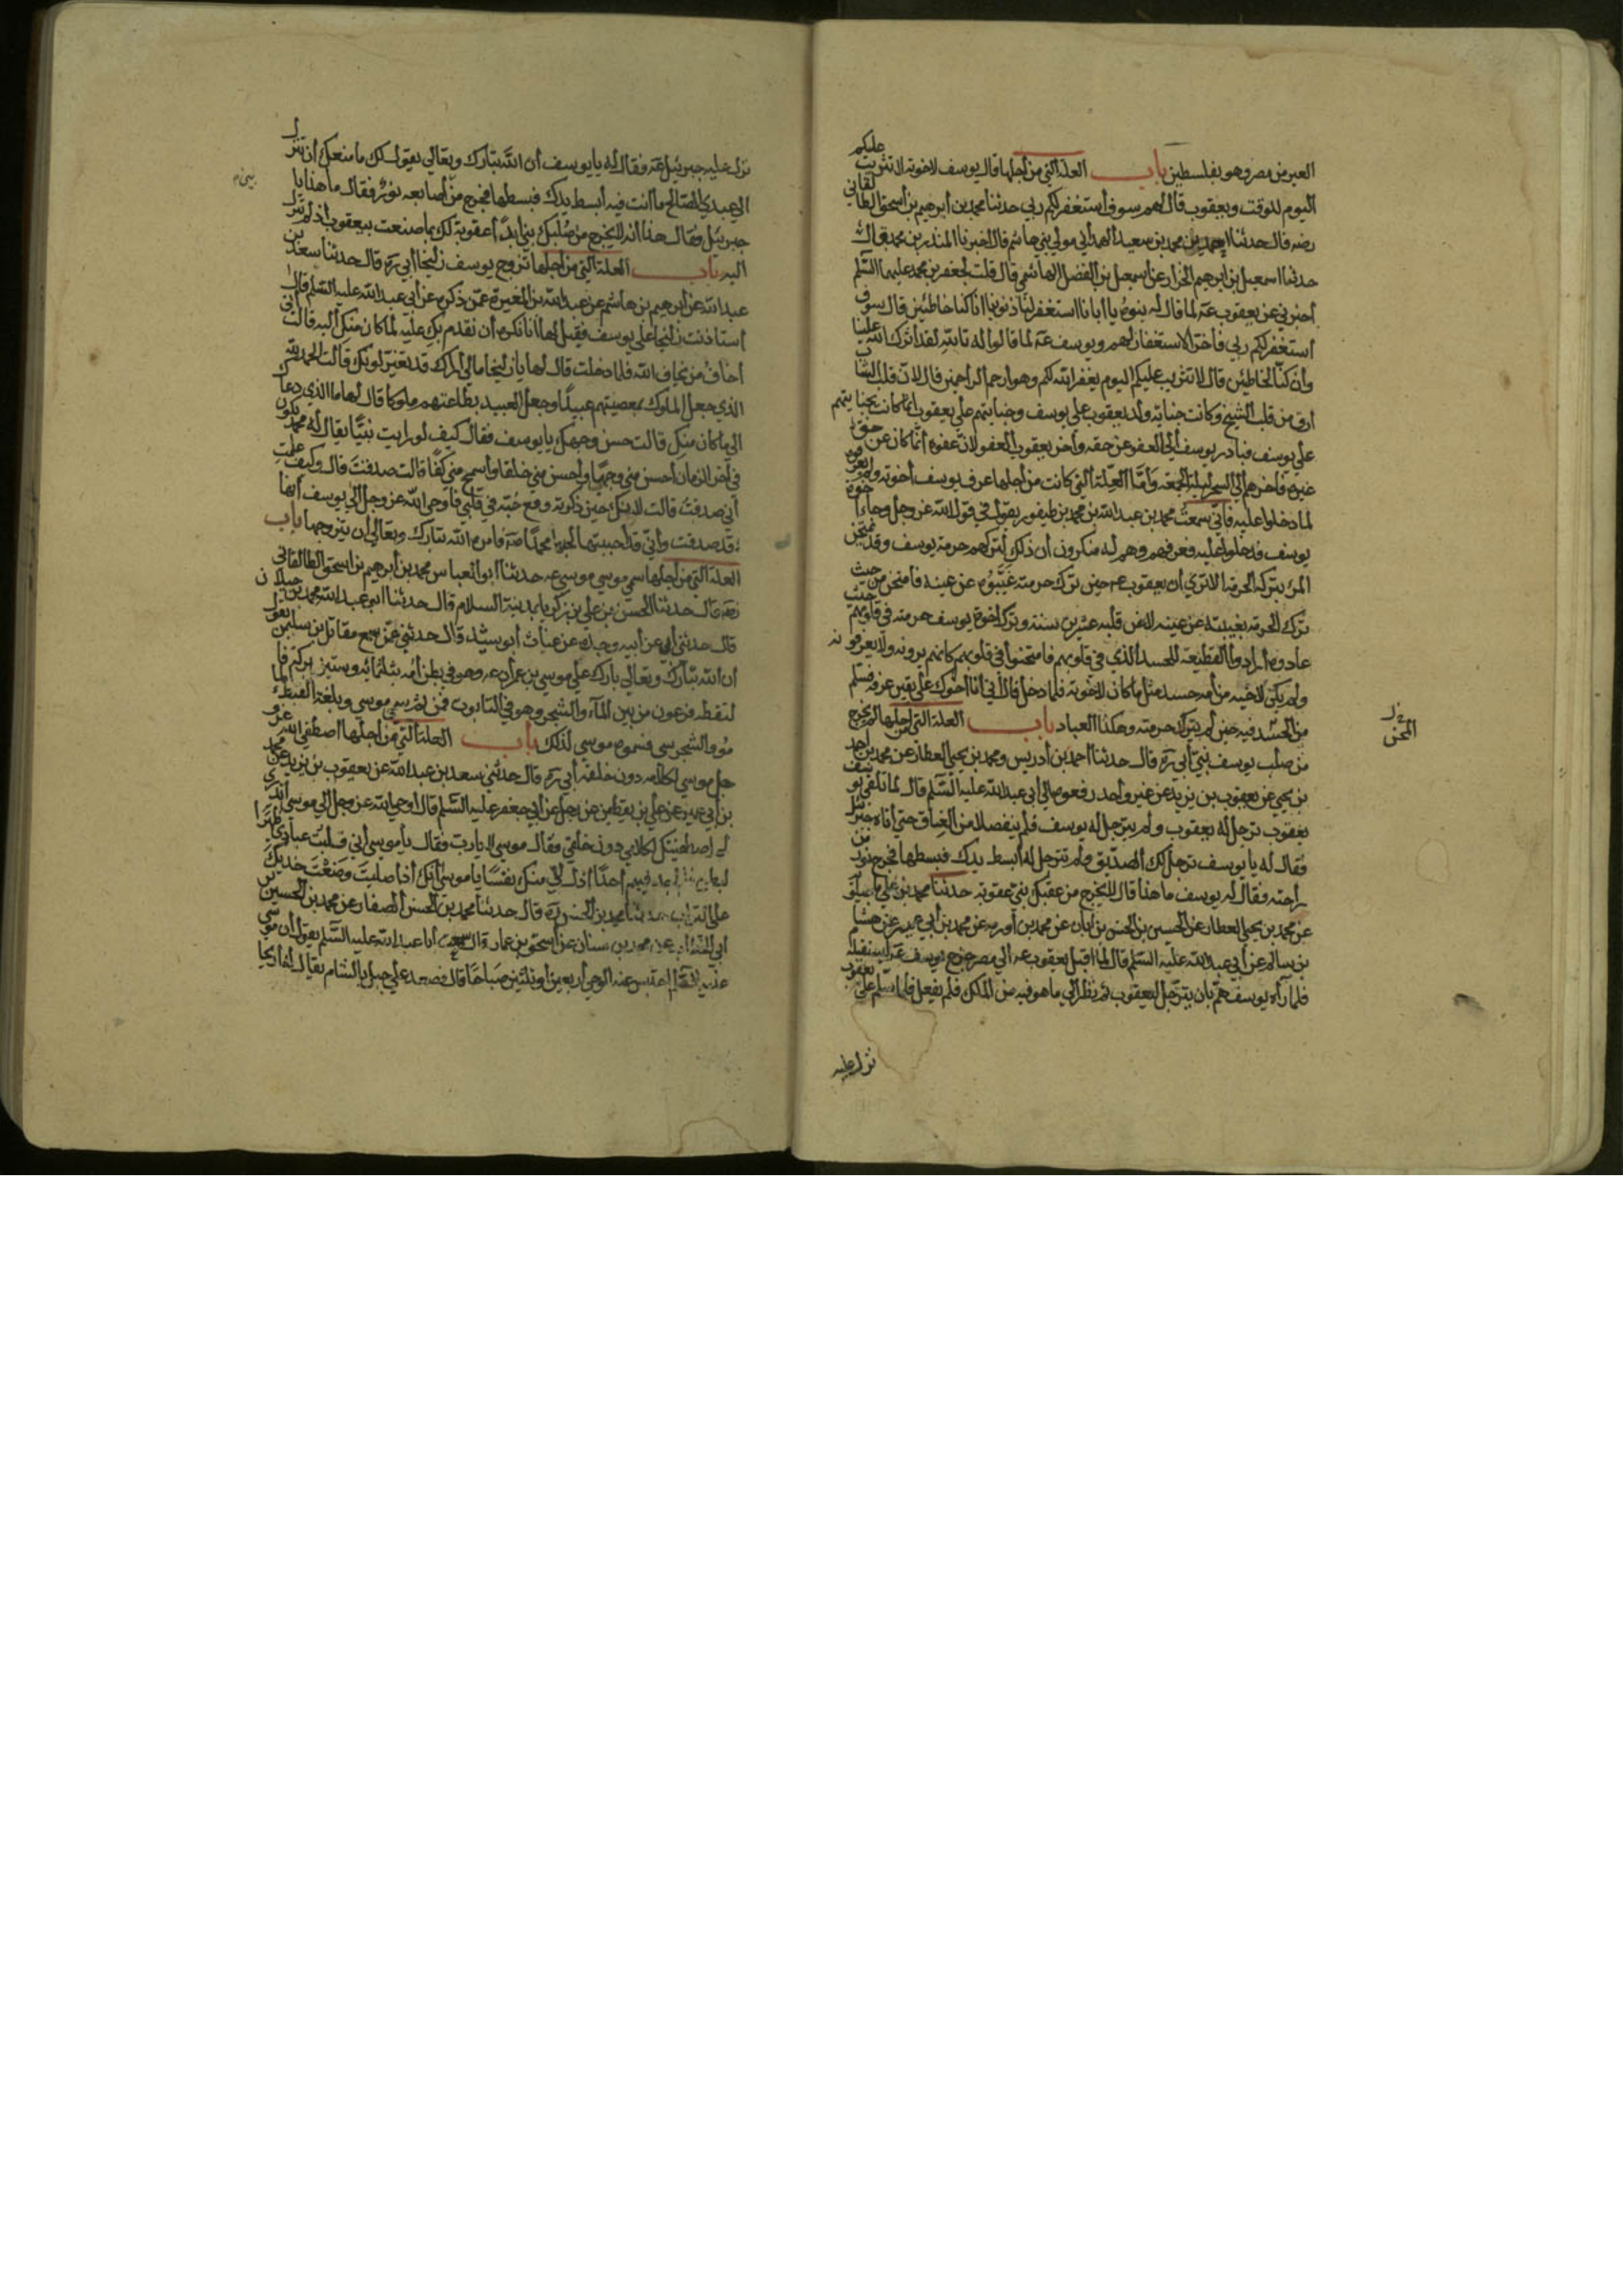 العير من مصر وهو بفلسطين باب العلة التي من أجلها قال يوسف لاخوته لا تثريب عليكم
اليوم لوقت ويعقوب قال لهم سوف أستغفر لكم ربي حدثنا محمد بن أبرهيم بن أسحق الطالقاني
رضه قال حدثنا احمد بن محمد بن سعيد الهمداني مولي بني هاشم قال اخبرنا المنذر بن محمد قال
حدثنا اسمعيل بن ابرهيم الخزاز عن اسمعيل بن الفضل الهاشمي قال قلت لجعفر بن محمد عليهما السّلم
أخبرني عن يعقوب عۃ لما قال له بنوه يا أبانا استغفر لنا ذنوبنا انا كنا خاطئين قال سوف
أستغفر لكم ربي فأخر الاستغفار لهم ويوسف عۃ لما قالوا له تالله لقد أثرك الله علينا
وأن كنا لخاطئين قال لا تثريب عليكم اليوم يغفر الله لكم وهو أرحم الراحمين قال لانّ قلب الشاب
أرق من قلب الشيخ وكانت جناية ولد يعقوب علي يوسف وجنايتهم علي يعقوب انما كانت بجنايتهم
علي يوسف فبادر يوسف إلي العفو عن حقه وأخر يعقوب العفو لانّ عفوه أنّما كان عن حق
غيره فأخرهم الي السحر ليلة الجمعة وأمّا العلة التي كانت من أجلها عرف يوسف أخوته ولم يعرفوه
لما دخلوا عليه فأني سمعت محمد بن عبد الله بن محمد بن طيفور يقول في قول الله عز وجل وجاء أخوة
يوسف فدخلوا عليه فعرفهم وهم له منكرون أن ذلك لتركهم حرمة يوسف وقد يمتحن
المرء بتركه الحرمة الا تري أن يعقوب عم حين ترك حرمته غيّبوه عن عينه فامتحن من حيث
ترك الحرمة بغيبته عن عينه لا عن قلبه عشرين سنة وترك اخوة يوسف حرمته في قلوبهم حيث
عادوه وأرادوا القطيعة للحسد الذي في قلوبهم فامتحنوا في قلوبهم كانهم يرونه ولا يعرفونه
ولم يكن لاخيه من أمه حسد مثل ما كان لاخوته فلما دخل قال اني أنا أخوك علي يقين عرفه فسلم
من الحسد فيه حين لم يترك حرمته وهكذا العباد باب العلة التي من اجلها لم يخرج
من صلب يوسف نبيّ أبي رۃ قال حدثنا احمد بن أدريس ومحمد بن يحيي العطار عن محمد بن أحمد
بن يحيي عن يعقوب بن يزيد عن غير واحد رفعوه الي أبي عبد الله عليه السّلم قال لما تلقي يوسف
يعقوب ترجل له يعقوب ولم يترجل له يوسف فلم ينفصلا من العناق حتي أتاه جبرئيل
فقال له يا يوسف ترجل لك الصدّيق ولم تترجل له أبسط يدك فبسطها فخرج نور من
راحته فقال له يوسف ما هذا قال لا يخرج من عقبك نبي عقوبة حدثنا محمد بن علي ماجيلويه
عن محمد بن يحيي العطار عن الحسين بن الحسن بن أبان عن محمد بن أورمه عن محمد بن أبي عمير عن هشام
بن سالم عن أبي عبد الله عليه السّلم قال لما اقبل يعقوب عه الي مصر خرج يوسف عۃ ليستقبله
فلما رآه يوسف همّ بان يترجّل ليعقوب ثم نظر الي ما هو فيه من الملك فلم يفعل فلما سلّم علي يعقوب
نزل عليه
المحن
نزل عليه جبرئيل عۃ فقال له يا يوسف أن الله تبارك وتعالي يقول لك ما منعك أن تنزل
الي عبدي الصالح ما انت فيه أبسط يدك فبسطها فخرج من أصابعه نور فقال ما هذا يا
جبرئيل فقال هذا انه لا يخرج من صلبك نبي أبداً عقوبة لك بما صنعت بيعقوب أذ لم تنزل
اليه باب العلة التي من أجلها تزوج يوسف زليخا أبي رۃ قال حدثنا سعد بن
عبد الله عن أبرهيم بن هاشم عن عبد الله بن المغيرة عمّن ذكره عن أبي عبد الله عليه السّلم قال
أستاذنت زليخا علي يوسف فقيل لها انا نكره أن نقدم بك عليه لما كان منك أليه قالت أني
أخاف من يخاف الله فلما دخلت قال لها يا زليخا مالي أراك قد تغيّر لونك قالت الحمد لله
الذي جعل الملوك بمعصيتهم عبيداً وجعل العبيد بطاعتهم ملوكا قال لها ما الذي دعاك
الي ما كان منك قالت حسن وجهك يا يوسف فقال كيف لو رايت نبيّا يقال له محمد يكون
في آخر الزمان أحسن مني وجها وأحسن مني خلقا وأسمح مني كفّا قالت صدقت قال وكيف علمت
أني صدقت قالت لانك حين ذكرته وقع حبّه في قلبي فأوحي الله عز وجل الي يوسف أنها
قد صدقت وأني قد أحببتها لحبها محمداً صۃ فأمره الله تبارك وتعالي أن يتزوجها باب
العلة التي من اجلها سمي موسي موسي عه حدثنا ابو العباس محمد بن أبرهيم بن اسحق الطالقاني
رضه قال حدثنا الحسن بن علي بن زكريا بمدينة السلام قال حدثنا ابو عبد الله محمد بن جيلان
قال حدثني أبي عن أبيه وجده عن عتاب أبو سيد قال حدثني عمّن سمع مقاتل بن سليمن يقول
أن الله تبارك وتعالي بارك علي موسي بن عمران عه وهو في بطن أمه بثلثمائة وستين بركة فا
لتقطه فرعون من بين الماء والشجر وهو في التابوت فمن ثم سمي موسي وبلغة القبط الما
مو والشجر سي فسموه موسي لذلك باب العلة التي من أجلها اصطفي الله عز و
جل موسي لكلامه دون خلقه أبي رۃ قال حدثني سعد بن عبد الله عن يعقوب بن يزيد عن محمد
بن أبي عمير عن علي بن يقطين عن رجل عن أبي جعفر عليه السّلم قال اوحي الله عز وجل الي موسي أتدري
لم اصطفيتك لكلامي دون خلقي فقال موسي لا يارب فقال يا موسي أني قلبت عبادي ظهراً
لبطن فلم أجد فيهم أحداً اذل لي منك نفساً يا موسي أنك أذا صليت وضعت خديك
علي التراب حدثنا محمد بن الحسن رۃ قال حدثنا محمد بن الحسن الصفار عن محمد بن الحسين بن
ابي الخطاب عن محمد بن سنان عن أسحق بن عمار قال سمعت أبا عبد الله عليه السّلم يقول أن موسي
عليه السّلم احتبس عنه الوحي أربعين أو ثلثين صباحا قال فصعد علي جبل بالشام يقال له أريحا